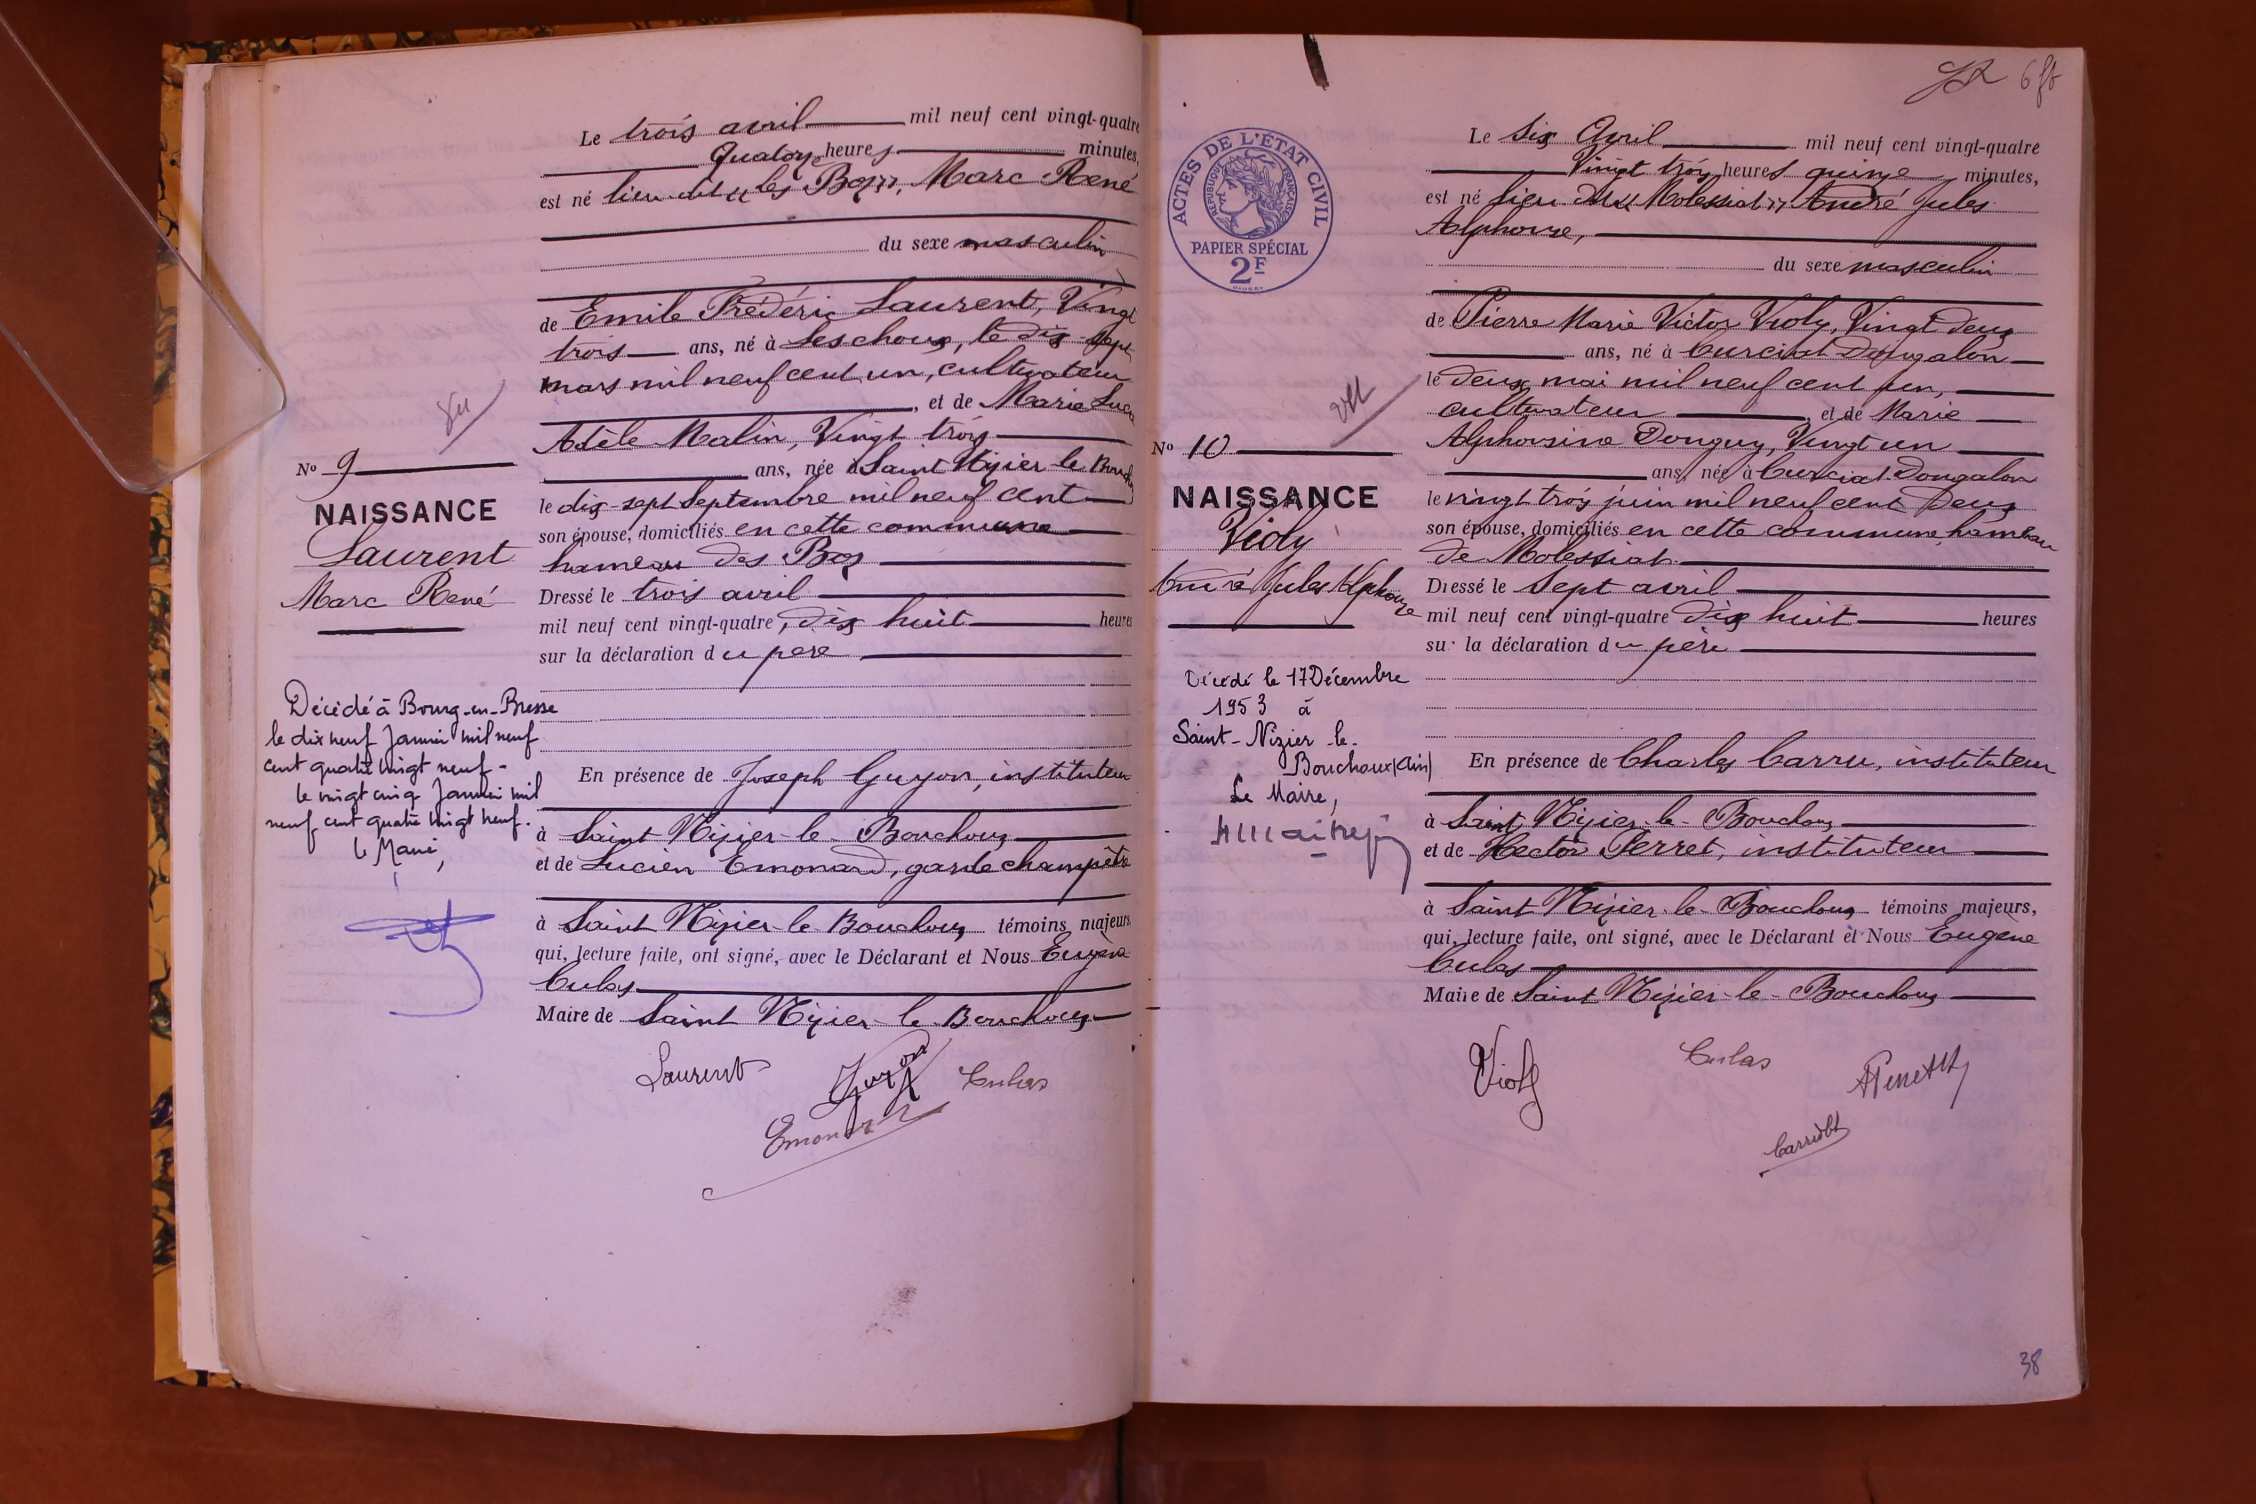 Le trois avril mil neuf cent vingt-quatre
Quatorze heures minutes,
est né lieu dit « les Bozs », Marc René
du sexe masculin
de Emile Frédéric Laurent, Vingt
trois ans, né à Leschoux, le dix-sept
mars mil neuf cent un, cultivateur
, et de Marie
Adèle Malin, Vingt trois
ans, née à Saint Nizier le
le dix-sept Septembre mil neuf cent
son épouse, domiciliés en cette commune
hameau des
Dressé le trois avril
mil neuf cent vingt-quatre, dix huit heures
sur la déclaration du père
En présence de Joseph Guyon, instituteur
à Saint Nizier-le-Bouchoux
et de Lucien Emonard, garde champêtre
à Saint Nizier-le Bouchoux témoins majeurs
qui, lecture faite, ont signé, avec le Déclarant et Nous Eugène
Culas
Maire de Saint Nizier-le-Bouchoux
Laurent
Guyon
Culas
Emonard
No 9
NAISSANCE
Laurent
Marc René
Décédé à Bourg-en-Bresse
le dix neuf Janvier mil neuf
cent quatre vingt neuf -
le vingt cinq Janvier mil
neuf cent quatre vingt neuf.
le Maire,
6
ACTES DE L'ÉTAT CIVIL
RÉPUBLIQUE FRANÇAISE
PAPIER SPÉCIAL
2F
Le six Avril mil neuf cent vingt-quatre
Vingt trois heures quinze minutes,
est né lieu dit « Molessiat », André Jules
Alphonse,
du sexe masculin
de Pierre Marie Victor Violy, Vingt deux
ans, né à Curciat Dongalon
le deux mai mil neuf cent un,
cultivateur , et de Marie
Alphonsine Donguy, Vingt un
ans, née à Curciat Dongalon
le vingt trois juin mil neuf cent deux
son épouse, domiciliés en cette commune, hameau
de Molessiat
Dressé le sept avril
mil neuf cent vingt-quatre dix huit heures
sur la déclaration du père
En présence de Charles instituteur
à Saint Nizier-le-Bouchoux
et de Hector instituteur
à Saint Nizier-le-Bouchoux témoins majeurs,
qui, lecture faite, ont signé, avec le Déclarant et Nous Eugène
Culas
Maire de Saint Nizier-le-Bouchoux
Violy
Culas
No 10
NAISSANCE
Violy
André Jules Alphonse
Décédé le 17 Décembre
1953 à
Saint-Nizier-le-
Bouchoux (Ain)
Le Maire,
38